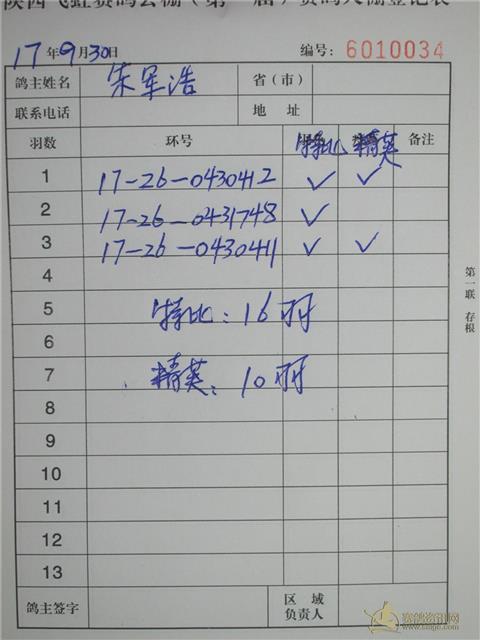 陕西飞虹赛鸽公棚(第一届)赛鸽入棚登记表
17年9月30日 编号：6010034
鸽主姓名 朱军浩 省（市）
联系电话 地址
羽数 环号 特比 精英 备注
1 17-26-0430412 ✓ ✓
2 17-26-0431748 ✓
3 17-26-0430411 ✓ ✓
4
5 特比：16羽
6
7 精英：10羽
8
9
10
11
12
13
鸽主签字 区域负责人
第一联 存根
赛鸽资讯网